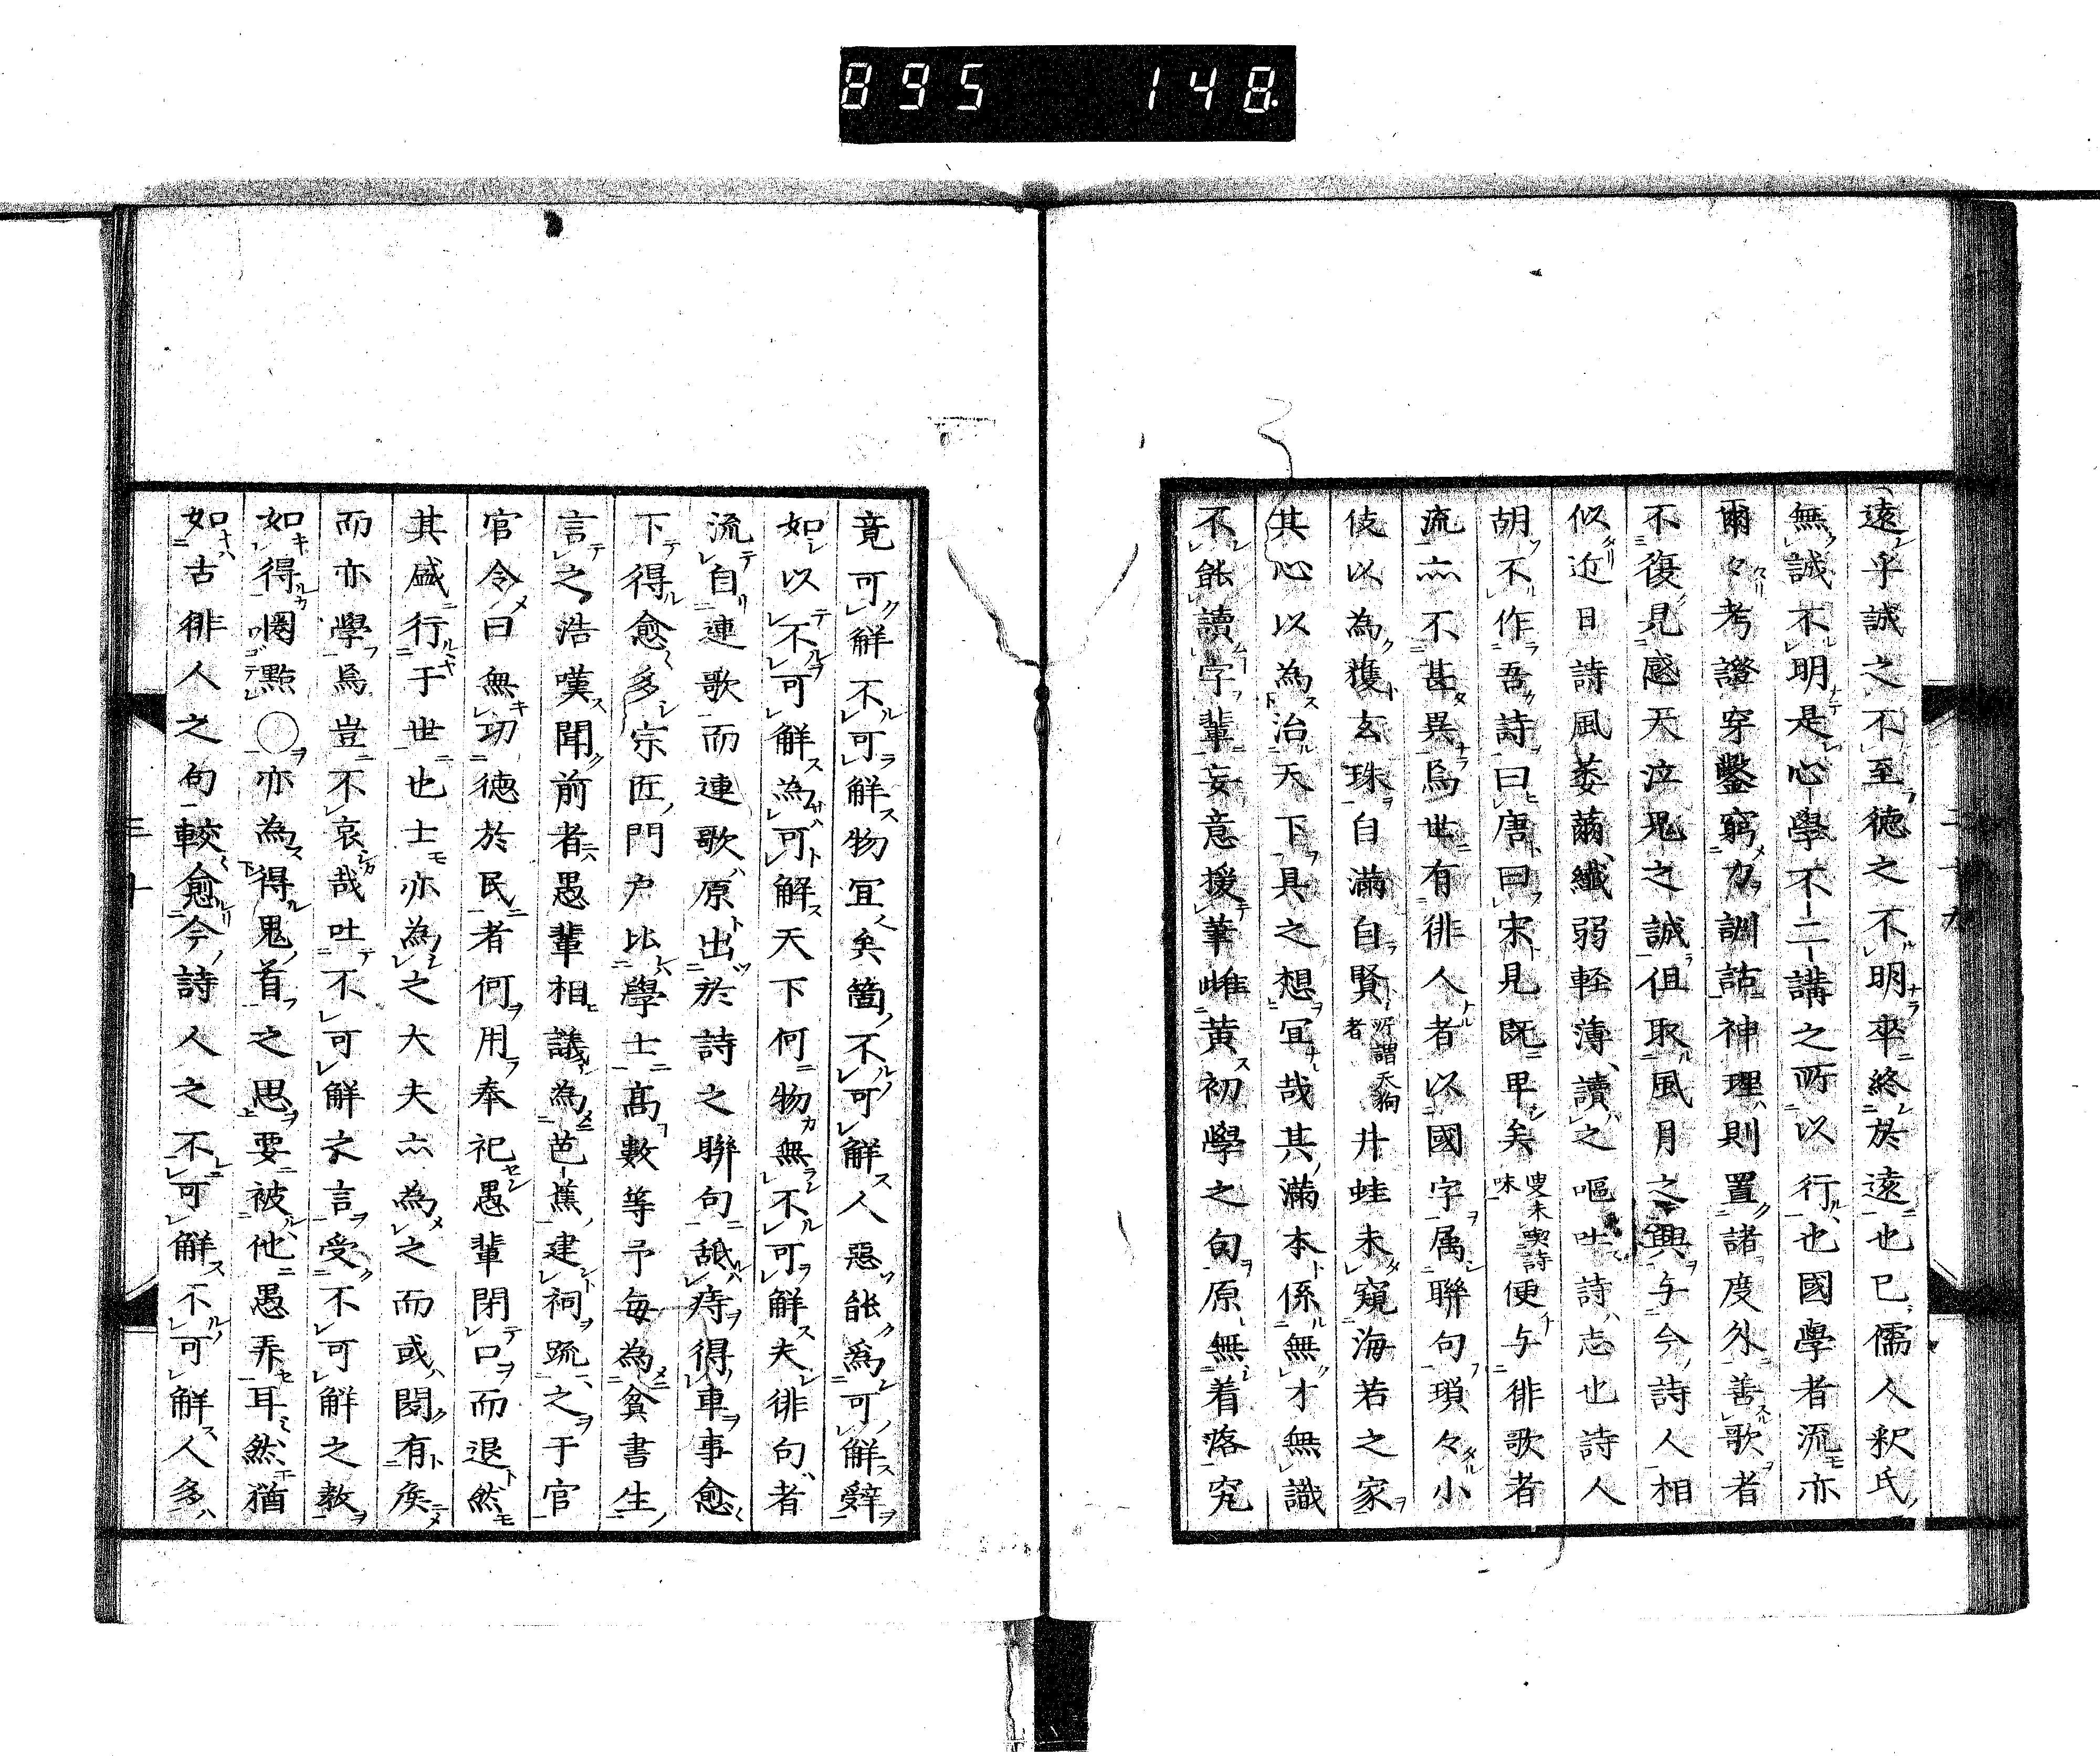 895 148
遠乎誠之不至德之不明卒終於遠也已儒人釈氏
無誠不明是心學不二講之所以行也國學者流亦
爾々考證穿鑿窮力訓詁神理則置諸度外善歌者
不復見感天泣鬼之誠但取風月之興与今詩人相
似近日詩風萎薾纖弱軽薄讀之嘔吐詩志也詩人
胡不作吾詩曰唐曰宋見既卑矣叟未喫詩味便与徘歌者
流亦不甚異焉世有徘人者以國字属聯句瑣々小
伎以為獲玄珠自滿自賢所謂天狗者井蛙未窺海若之家
其心以為治天下具之想冝哉其滿本係無才無識
不能讀字輩妄意援筆雌黄初學之句原無着落究
三十九
竟可解不可解物冝矣箇不可解人惡能為可解辭
如以不可解為可解天下何物無不可解夫徘句者
流自連歌而連歌原出於詩之聯句舐痔得車事愈
下得愈多宗匠門戸比學士高數等予每為貧書生
言之浩嘆聞前者愚輩相議為芭蕉建祠䟽之于官
官令曰無功德於民者何用奉祀愚輩閉口而退然
其盛行于世也士亦為之大夫亦為之而或閔有矦
而亦學焉豈不哀哉吐不可解之言受不可解之教
如得圏點〇亦為得鬼首之思要被他愚弄耳然猶
如古徘人之句較愈今詩人之不可解不可解人多
三十